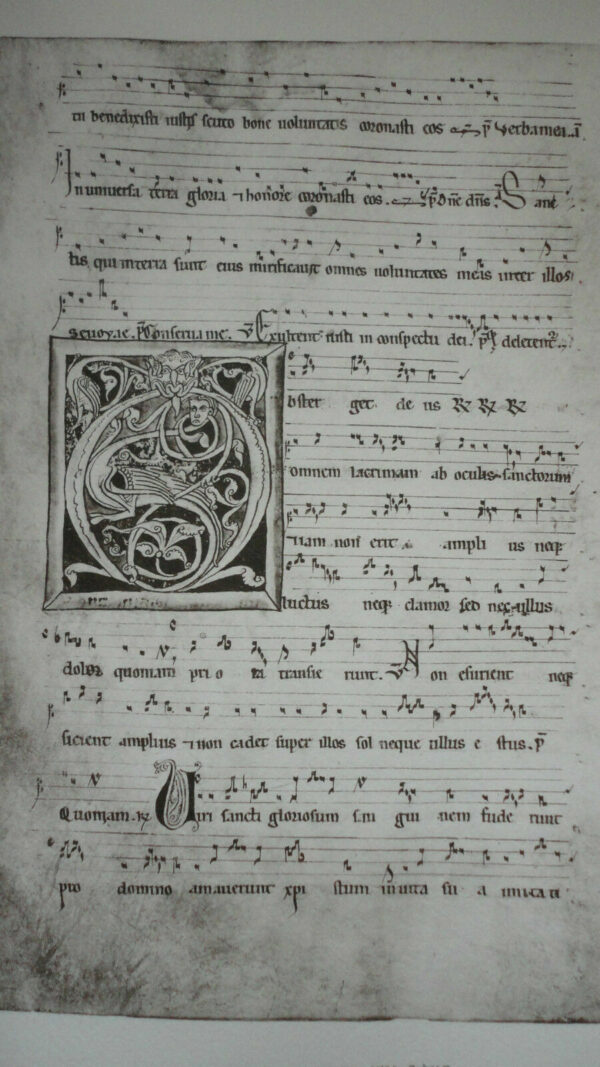 in benedixisti iustis scuto bone uoluntatis coronasti eos p̄ Verba mea. ī
In uniuersa terra gloria ⁊ honore coronasti eos. p̄ Dñe dñs. Sanc
tis qui in terra sunt eius mirificauit omnes uoluntates meas inter illos
seuouae. p̄ Conserua me. Exultent iusti in conspectu dei. p̄
bster get de us
omnem lacrimam ab oculis sanctorum
⁊ iam non erit ampli us neq
luctus neq clamor sed nec ullus
dolor quoniam pri o ra transie runt. Non esurient neq
sicient amplius ⁊ non cadet super illos sol neque ullus e stus. p̄
Quoniam. Uiri sancti gloriosum san gui nem fude runt
pro domino amauerunt xpi stum in uita su a imitati